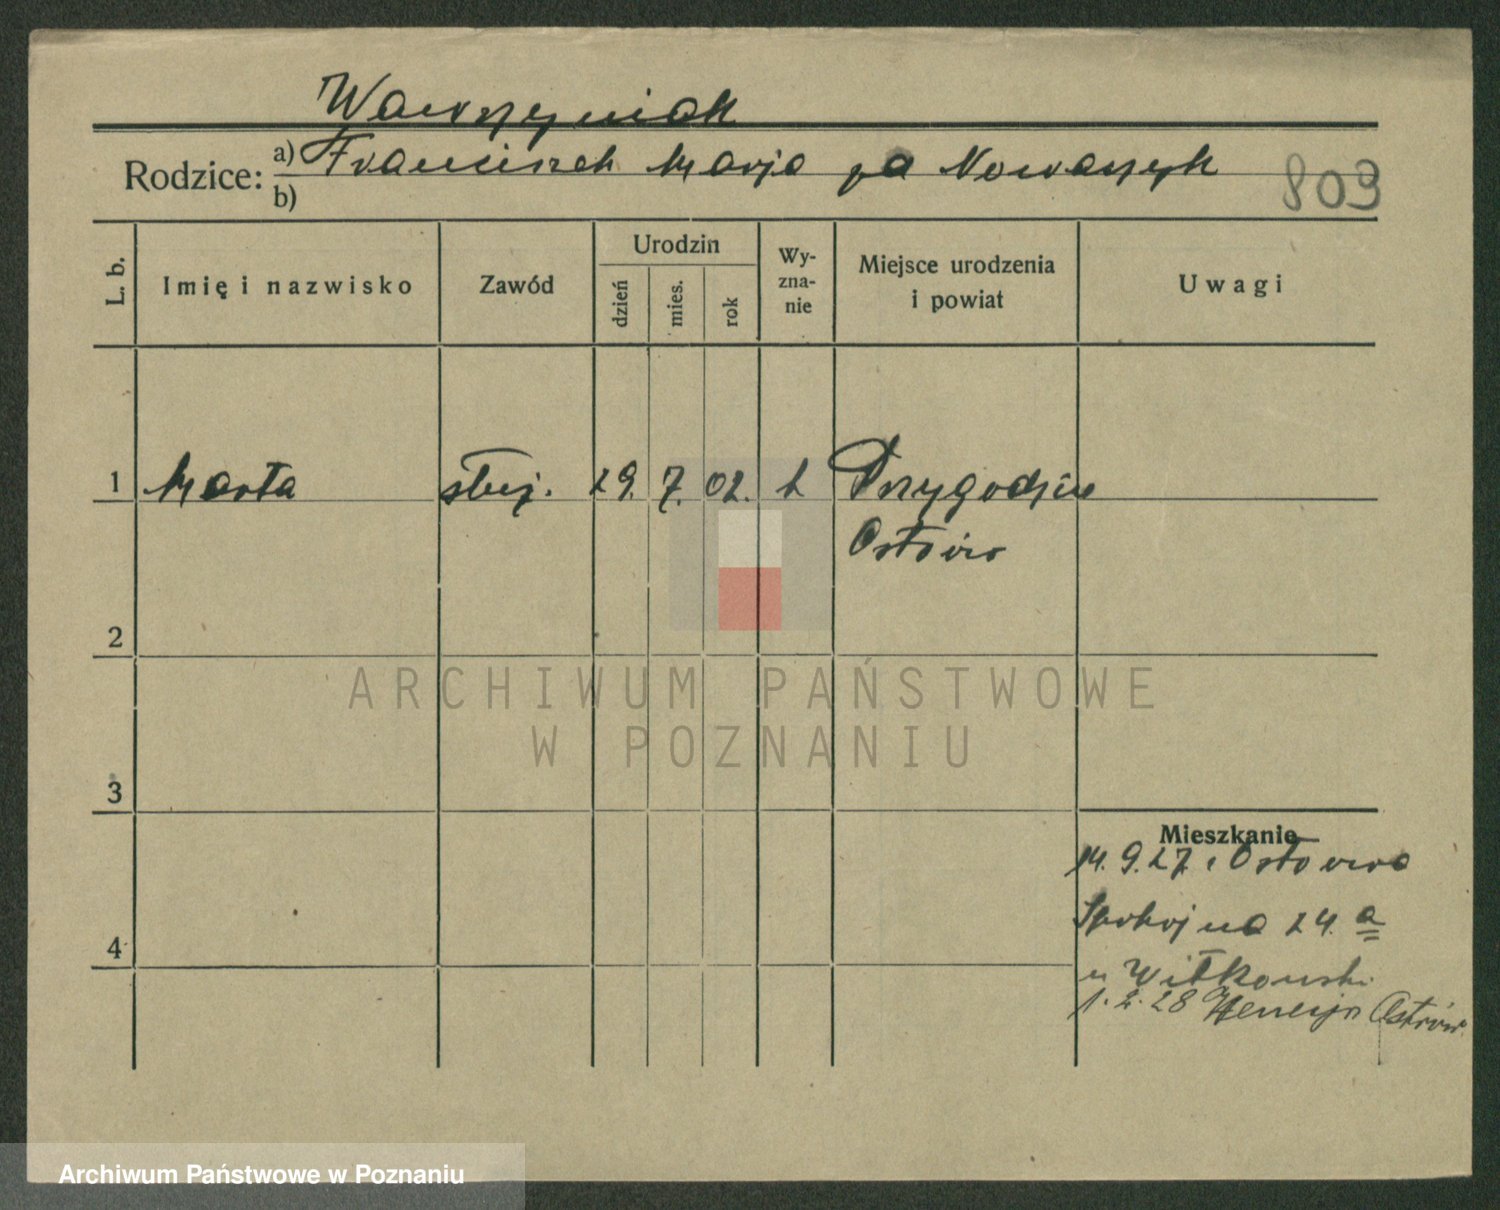 Wawrzyniak
Rodzice: a) Franciszek Marja za Nowaczyk
b)
803
L. b.
Imię i nazwisko
Zawód
Urodzin
dzień
mies.
rok
Wy-
zna-
nie
Miejsce urodzenia
i powiat
Uwagi
1 Marta służ. 29. 7. 02. k Przygodzice
Ostrów
2
ARCHIWUM PAŃSTWOWE
W POZNANIU
3
Mieszkanie
14. 9. 27. z Ostrowa
Spokojna 24. a
u Witkowski
1. 2. 28 Ostrów.
4
Archiwum Państwowe w Poznaniu